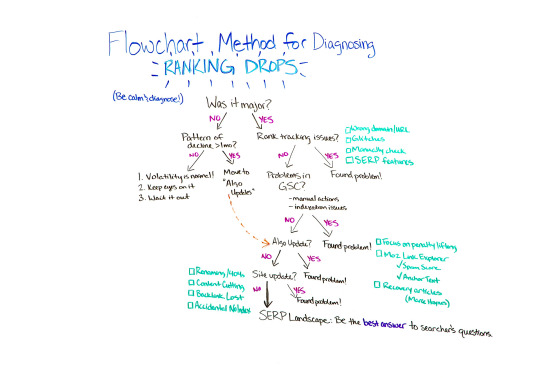 Flowchart Method for Diagnosing
RANKING DROPS
(Be calm & diagnose!)
Was it major?
NO
YES
Pattern of
decline >1mo?
Rank tracking issues?
Wrong domain/URL
Glitches
Manually check
SERP features
NO
YES
NO
YES
1. Volatility is normal!
2. Keep eyes on it
3. Wait it out
Move to
"Algo
Updates"
Problems in
GSC?
- manual actions
- indexation issues
Found problem!
NO
YES
Algo Update?
Found problem!
Focus on penalty lifting
Moz Link Explorer
Spam Score
Anchor Text
Recovery articles
(Marie Haynes)
NO
YES
Renaming/
Content Cutting
Backlinks Lost
Accidental NoIndex
Site update?
Found problem!
NO
YES
Found problem!
SERP Landscape: Be the best answer to searcher's questions.